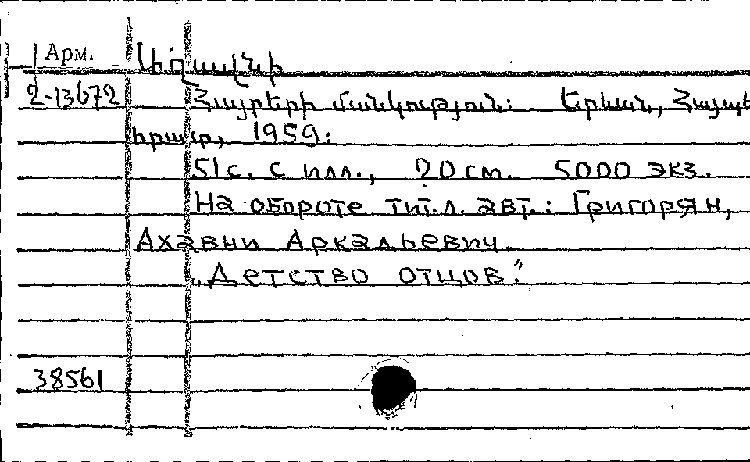 Арм.
2-13672
Հայրերի մանկություն: Երևան, Հայպետ
հրատ, 1959:
51 с. с илл., 20 см. 5000 экз.
На обороте тит. л. авт.: Григорян,
Ахавни Аркадьевич.
„Детство отцов."
38561